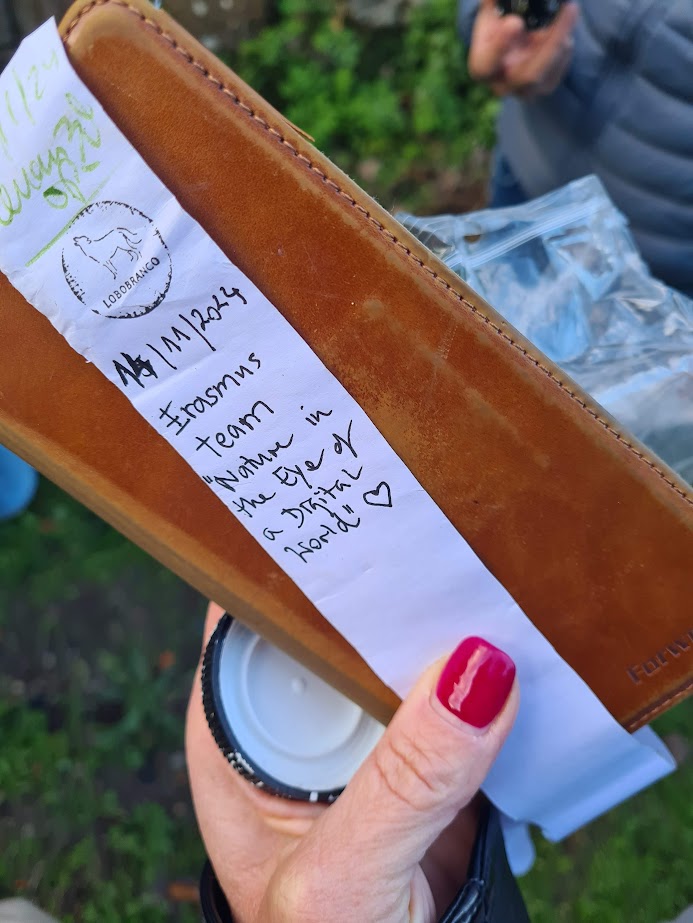 LOBOBRANCO
14/11/2024
Erasmus
team
"Nature in
the Eye of
a Digital
World" ♡